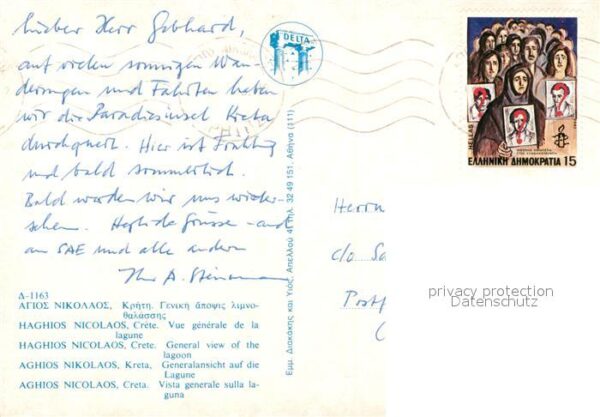 Lieber Herr Gebhard,
auf vielen sonnigen Wan-
derungen und Fahrten haben
wir die Paradiesinsel Kreta
durchquert. Hier ist Frühling
und bald sommerlich.
Bald werden wir uns wieder-
sehen. Herzliche Grüsse - auch
an SAE und alle andern
Ihr A.
Δ-1163
ΑΓΙΟΣ ΝΙΚΟΛΑΟΣ, Κρήτη. Γενική άποψις λιμνο-
θαλάσσης
HAGHIOS NICOLAOS, Crète. Vue générale de la
lagune
HAGHIOS NICOLAOS, Crete. General view of the
lagoon
AGHIOS NIKOLAOS, Kreta, Generalansicht auf die
Lagune
AGHIOS NICOLAOS, Creta. Vista generale sulla la-
guna
DELTA
Εμμ. Διακάκης και Υιός, Απελλού 4 τηλ. 32 49 151. Αθήνα (111)
HELLAS
ΕΛΛΗΝΙΚΗ ΔΗΜΟΚΡΑΤΙΑ 15
Herrn
c/o
Postf
privacy protection
Datenschutz